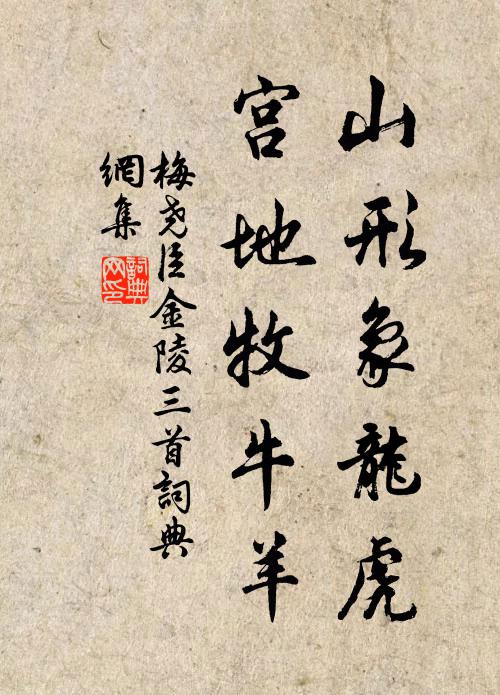 山形象龍虎
宮地牧牛羊
梅堯臣金陵三首詞典
網集
詞典
網印